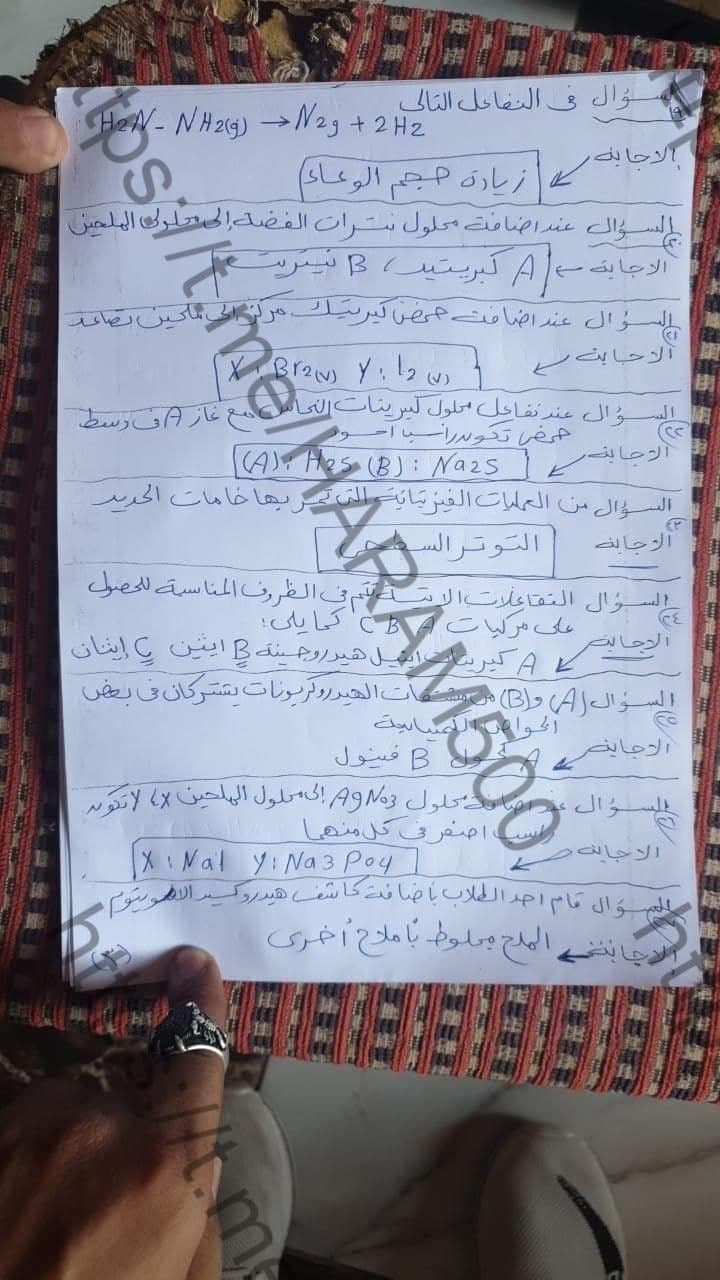 السؤال فى التفاعل التالى
١٩
H2N - NH2(g) → N2g + 2H2
الاجابة
زيادة حجم الوعاء
السؤال عند اضافة محلول نترات الفضة إلى محلولى الملحين
٢٠
الاجابة A كبريتيد، B نيتريت
السؤال عند اضافة حمض كبريتيك مركز الى ملحين تصاعد
٢١
الاجابة
X : Br2(v) Y : I2(v)
السؤال عند تفاعل محلول كبريتات النحاس مع غاز A فى وسط
٢٢
حمضى تكون راسب اسود
الاجابة
(A) : H2S (B) : Na2S
السؤال من العمليات الفيزيائية التى تمر بها خامات الحديد
الاجابة
التوتر السطحى
السؤال التفاعلات الاتية تتم فى الظروف المناسبة للحصول
٢٤
على مركبات A B C كما يلى:
الاجابة
A كبريتات ايثيل هيدروجينية B ايثين C إيثان
السؤال (A) و(B) من مشتقات الهيدروكربونات يشتركان فى بعض
٢٥
الخواص الكميايية
الاجابة
A كحول B فينول
السؤال عند اضافة محلول AgNO3 إلى محلول الملحين x، y تكون
٢٦
راسب اصفر فى كل منهما
الاجابة
X : NaI Y : Na3PO4
السؤال قام احد الطلاب باضافة كاشف هيدروكسيد الامونيوم
الاجابة الملح مخلوط بأملاح أخرى
(٣)
https://t.me/HARAM500